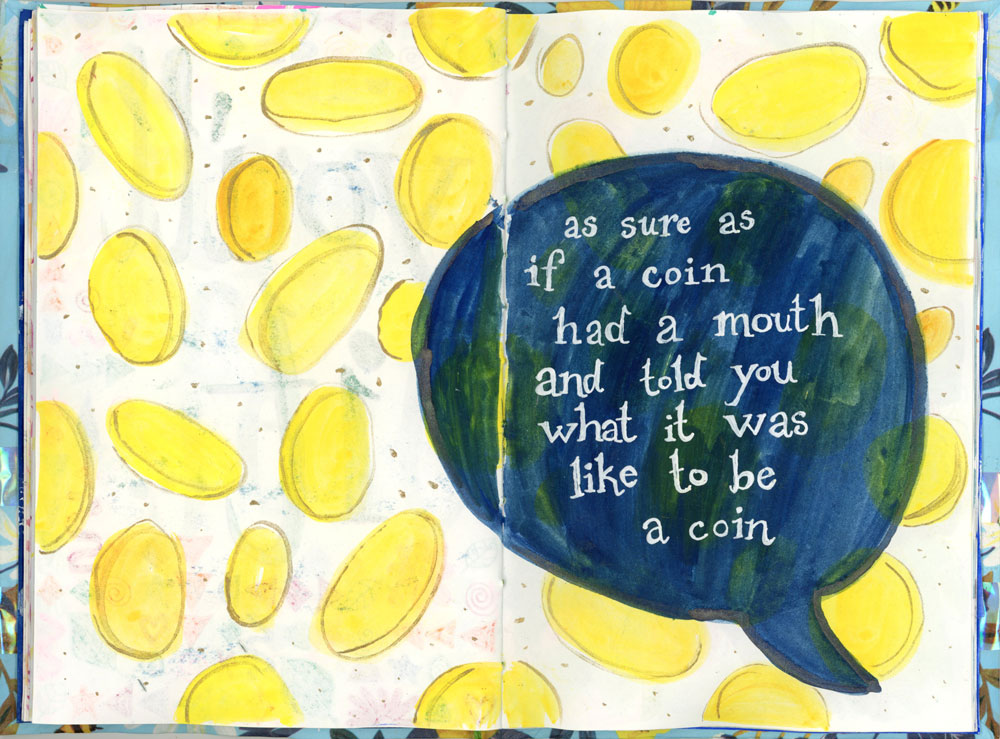 as sure as
if a coin
had a mouth
and told you
what it was
like to be
a coin